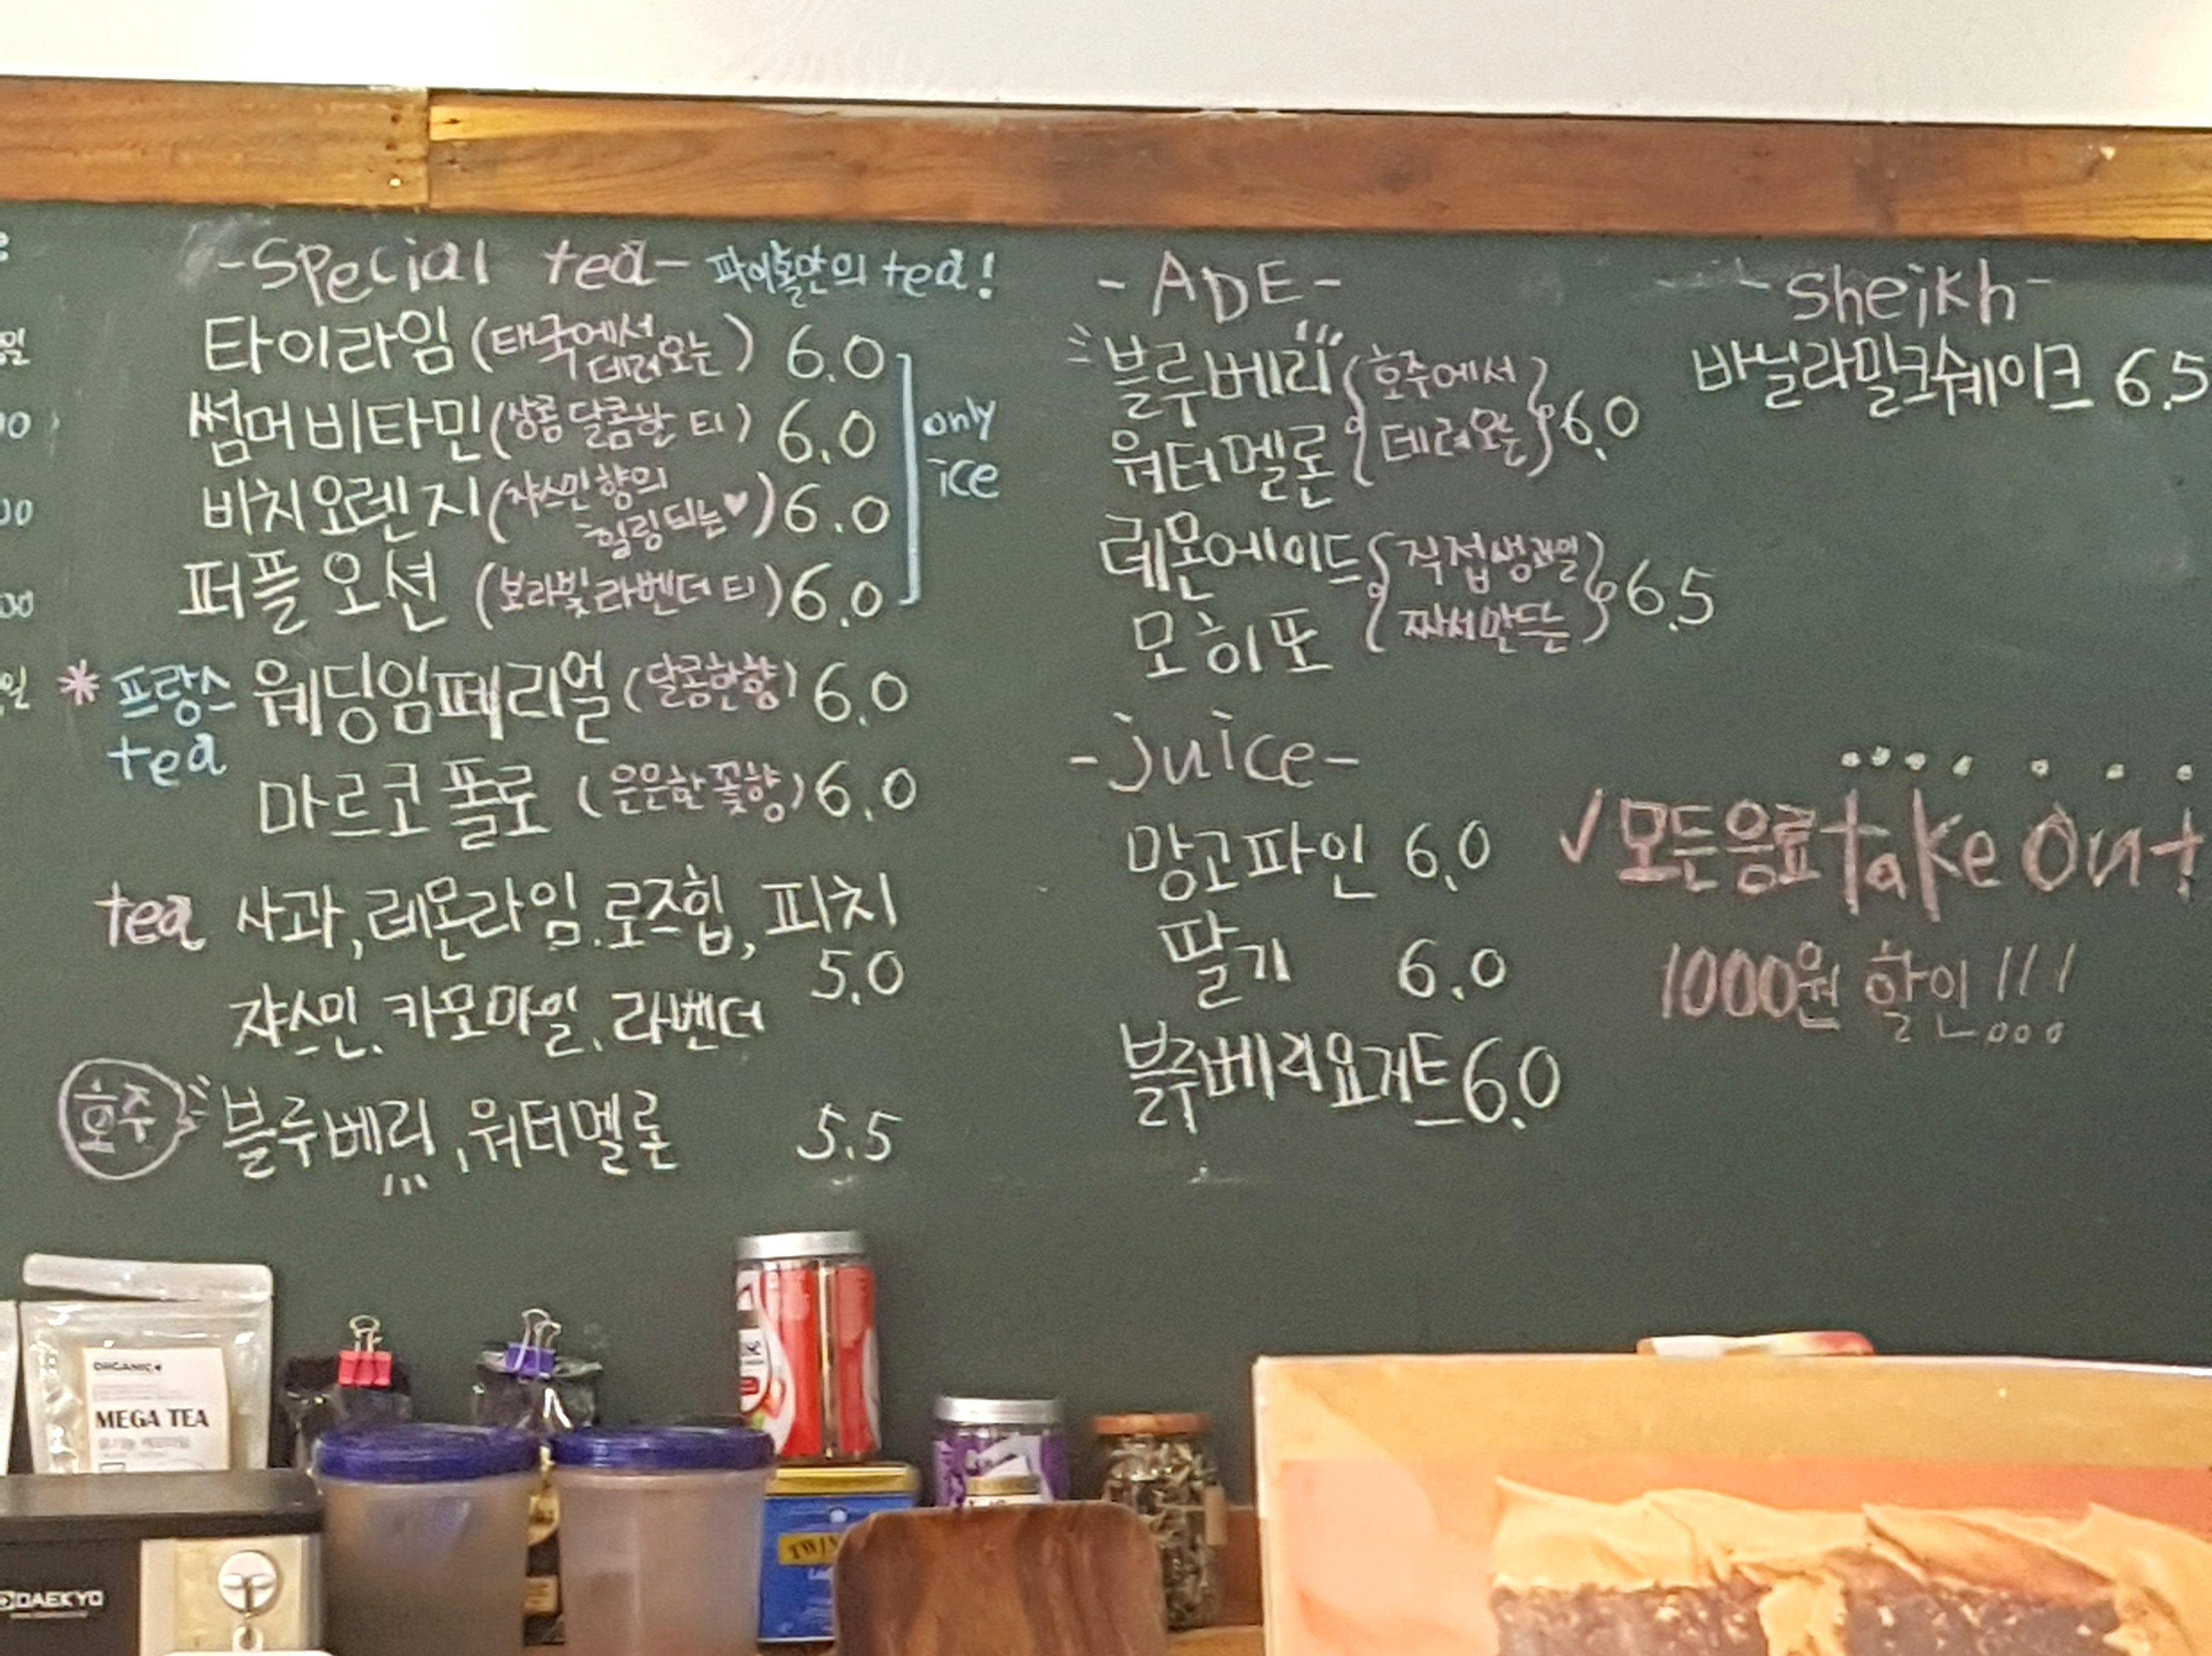 -Special tea- 파이홀만의 tea!
타이라임 (태국에서 데려오는) 6.0
썸머비타민 (상콤달콤한 티) 6.0
비치오렌지 (쟈스민향의 힐링되는♥) 6.0
퍼플오션 (보라빛라벤더티) 6.0
only
ice
* 프랑스 웨딩임페리얼 (달콤한향) 6.0
tea
마르코폴로 (은은한꽃향) 6.0
tea 사과, 레몬라임, 로즈힙, 피치
5.0
쟈스민, 카모마일, 라벤더
호주 블루베리, 워터멜론 5.5
-ADE-
블루베리 {호주에서
워터멜론 데려오는} 6.0
레몬에이드 {직접생과일
모히또 짜서만드는} 6.5
-juice-
망고파인 6.0
딸기 6.0
블루베리요거트 6.0
-Sheikh-
바닐라밀크쉐이크 6.5
✓모든음료 take out
1000원 할인!!!
ORGANIC
MEGA TEA
DAEKYO